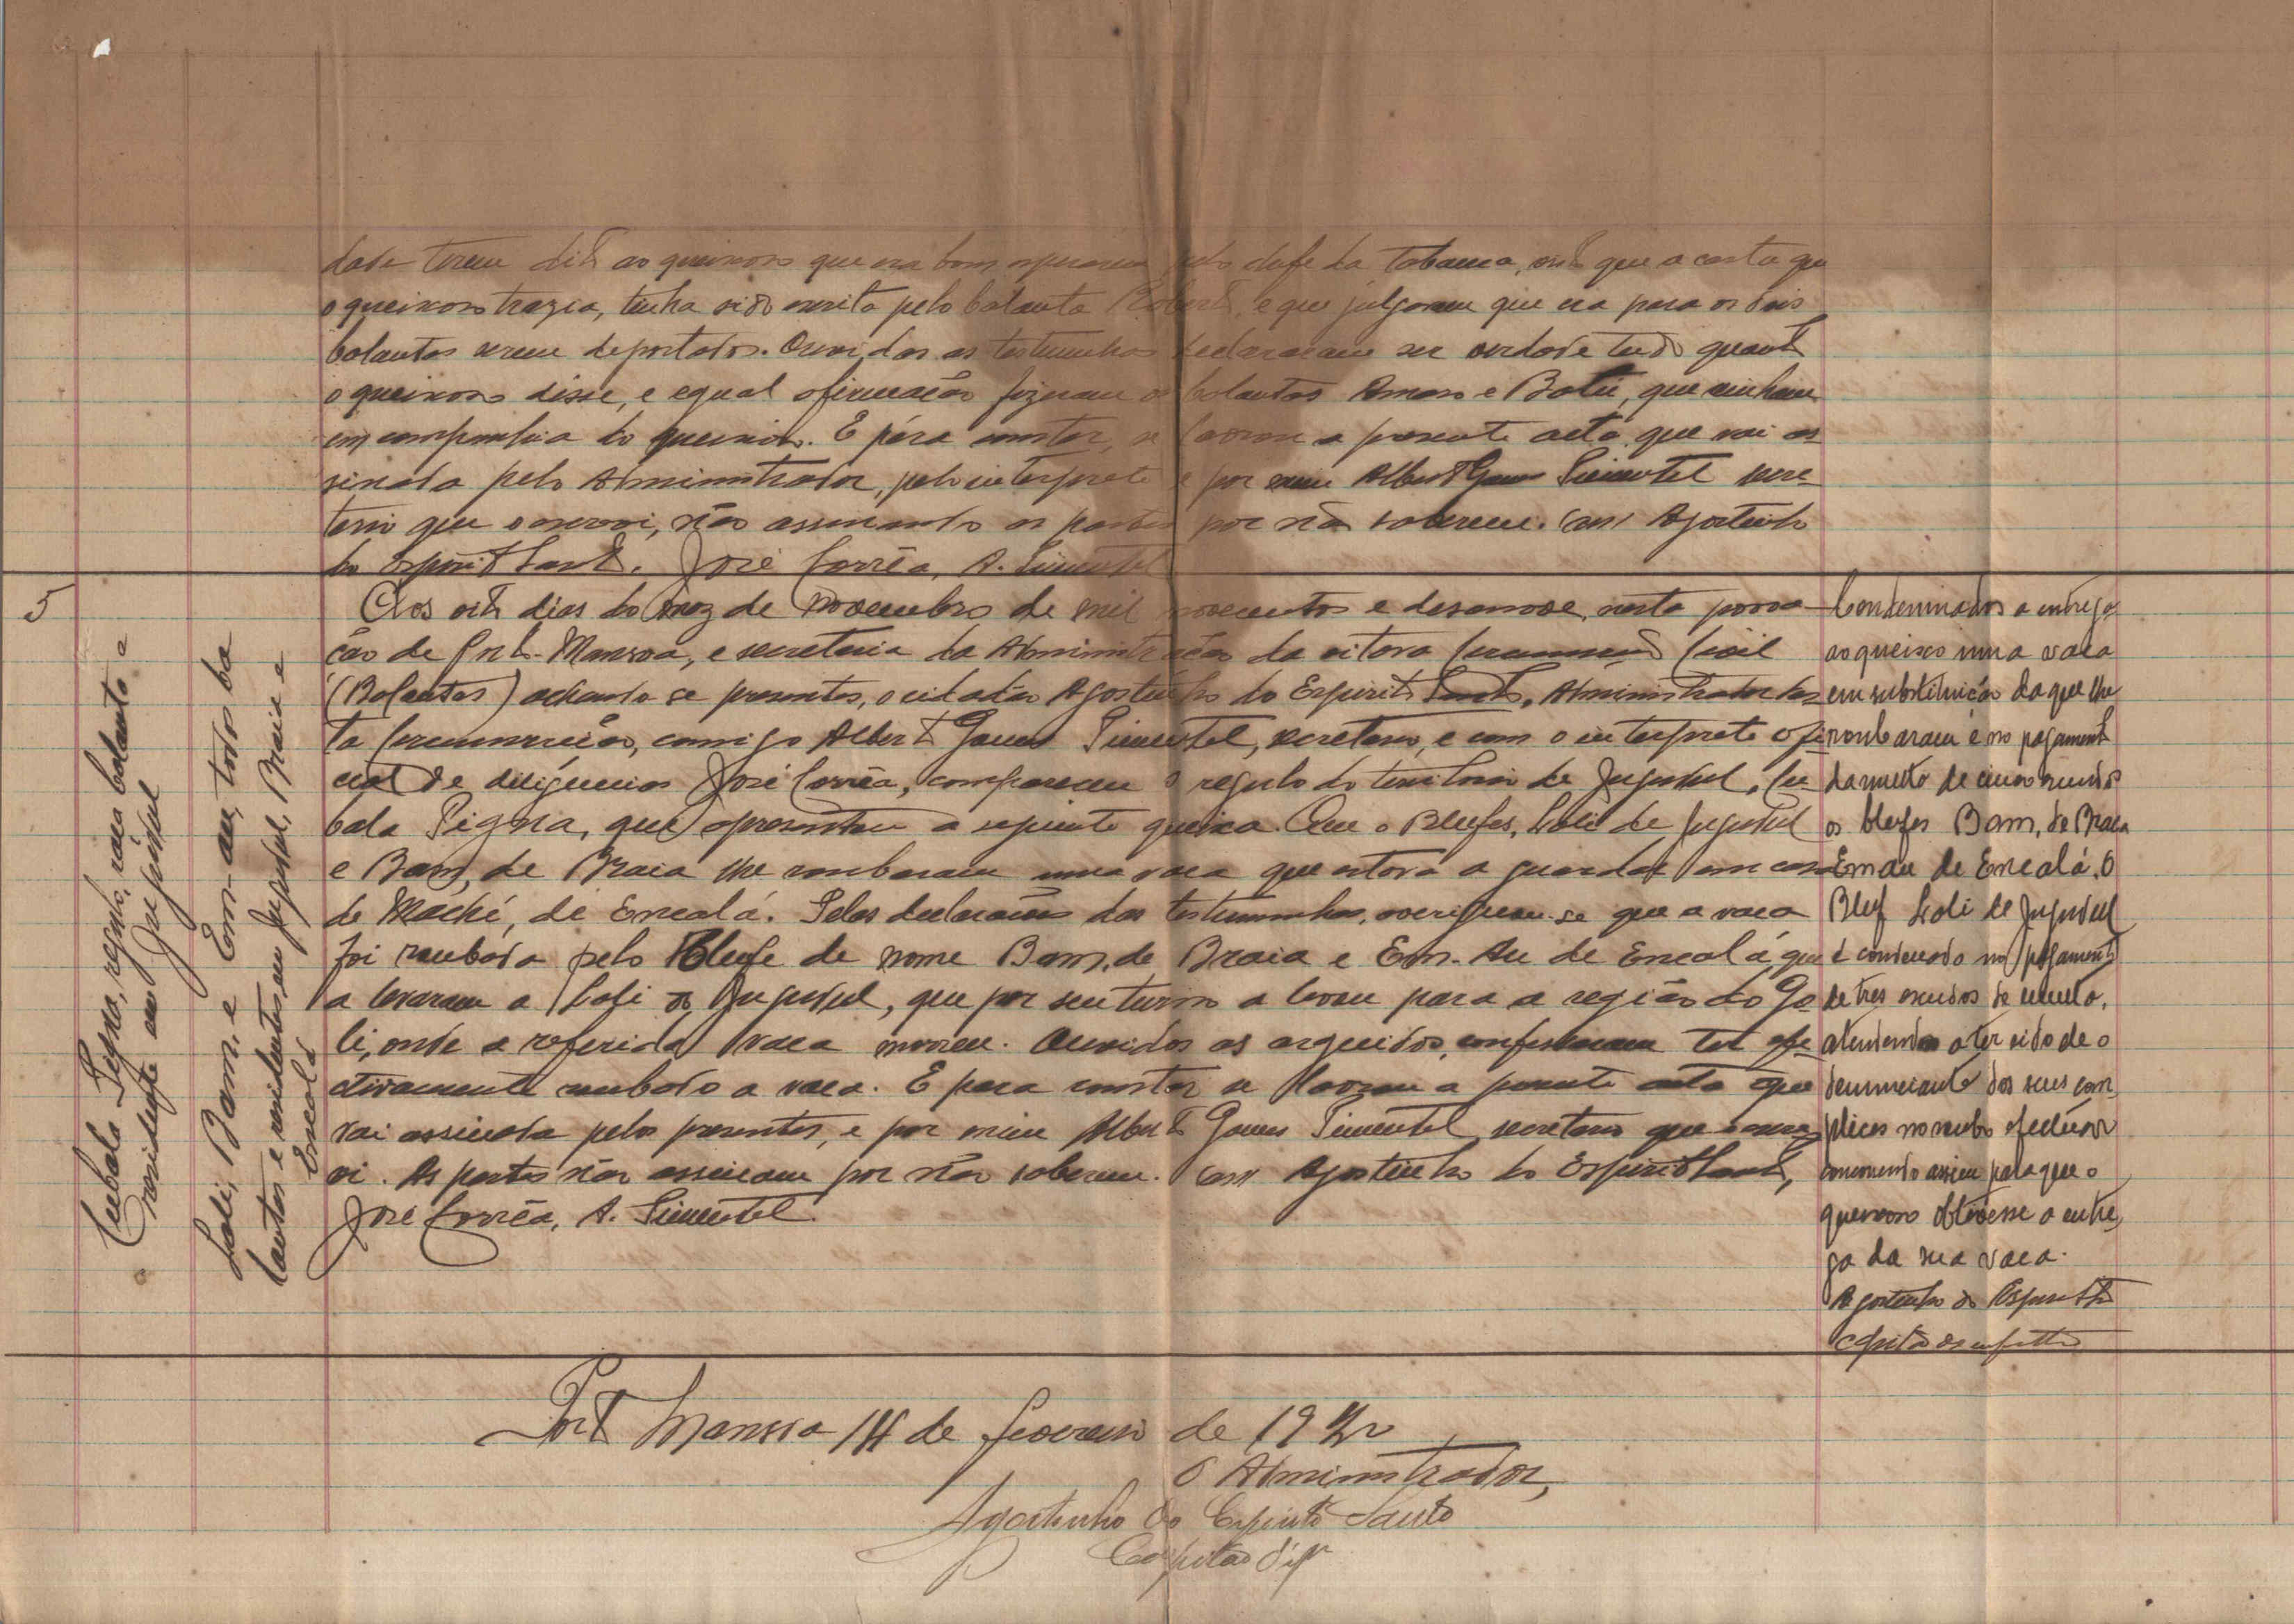 dade terem dito ao queixoso que era bom esperarem pelo chefe da tabanca, visto que a carta que
o queixoso trazia, tinha sido escrita pelo balanta e que julgaram que era para os dois
balantas serem deportados. Ouvidas as testemunhas declararam ser verdade tudo quanto
o queixoso disse, e egual afirmação fizeram os balantas Amaro e Batú, que vinham
em companhia do queixoso. E pára constar, se lavrou a presente acta que vai as
sinada pelo Administrador, pelo interprete e por mim Alberto Gomes Pimentel secre-
tario que o escrevi, não assinando as partes por não saberem. (aa) Agostinho
do Espirito Santo. José Corrêa, A. Pimentel
5
Cubala Pigna, regulo, raça balanta e
residente em Jugudul
Loli, Bam, e Em-au, todos ba
lantas e residentes em Jugudul, Braia e
Encalá
Aos oito dias do mez de Novembro de mil novecentos e desanove, nesta povoa-
ção de Porto-Mansoa, e secretaria da Administração da oitava Circunscrição Civil
(Balantas) achando se presentes, o cidadão Agostinho do Espirito Santo, Administrador des-
ta Circunscrição, comigo Alberto Gomes Pimentel, secretario, e com o interprete ofi
cial de diligencias José Corrêa, compareceu o regulo do territorio de Jugudul, Cu-
bala Pigna, que apresentou a seguinte queixa. Que o Blufes, Loli de Jugudul
e Bam, de Braia lhe roubaram uma vaca que estava a guardar em casa
de Maché, de Encalá. Pelas declarações das testemunhas, averiguou-se que a vaca
foi roubada pelo Blufe de nome Bam, de Braia e Em-Au de Encalá, que
a levaram a Loli de Jugudul, que por seu turno a levou para a região do Go-
li, onde a referida vaca morreu. Ouvidos os arguidos, confessaram ter efe-
ctivamente roubado a vaca. E para constar se lavrou a presente acta que
vai assinada pelos presentes, e por mim Alberto Gomes Pimentel secretario que o escre
vi. As partes não assinam por não saberem. (aa) Agostinho do Espirito Santo,
José Corrêa, A. Pimentel.
Condenados a entregar
ao queixoso uma vaca
em substituição da que lhe
roubaram e no pagamento
da multa de cinco escudos
os blufes Bam, de Braia
Em au de Encalá. O
Bluf Loli de Jugudul
é condenado no pagamento
de tres escudos de multa,
atendendo a ter sido de o
denunciante dos seus com
plices no roubo efectuado
concorrendo assim para que o
queixoso obtivesse a entre
ga da sua vaca.
Agostinho do Espirito Sto
Capitão de infattria
Porto Mansoa 14 de fevereiro de 1920
O Administrador,
Agostinho do Espirito Santo
Capitão d'infª